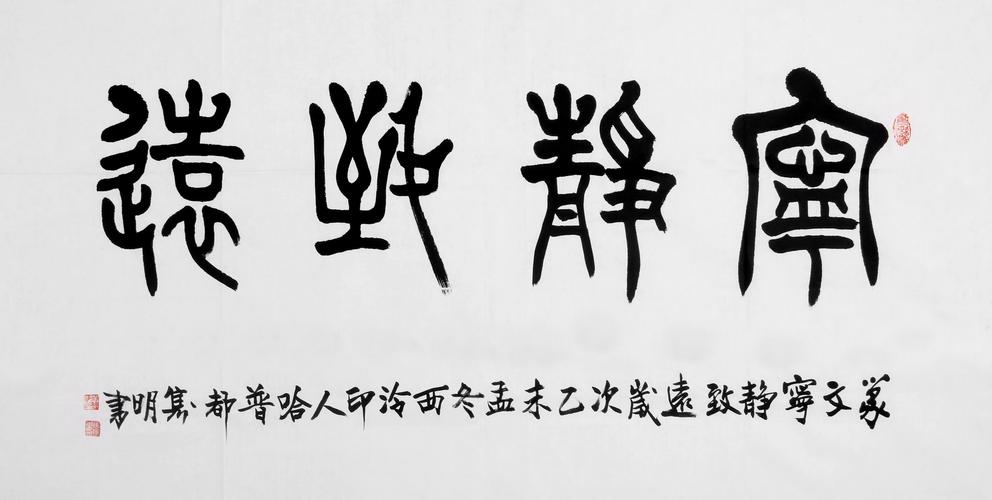 寧靜致遠
篆文寧靜致遠歲次乙未孟冬西泠印人哈普都隽明書